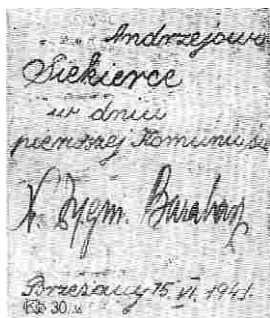 Andrzejowi
Siekierce
w dniu
pierwszej Komunii św
X. Zygm.
Brzeżany 15 VI. 1941